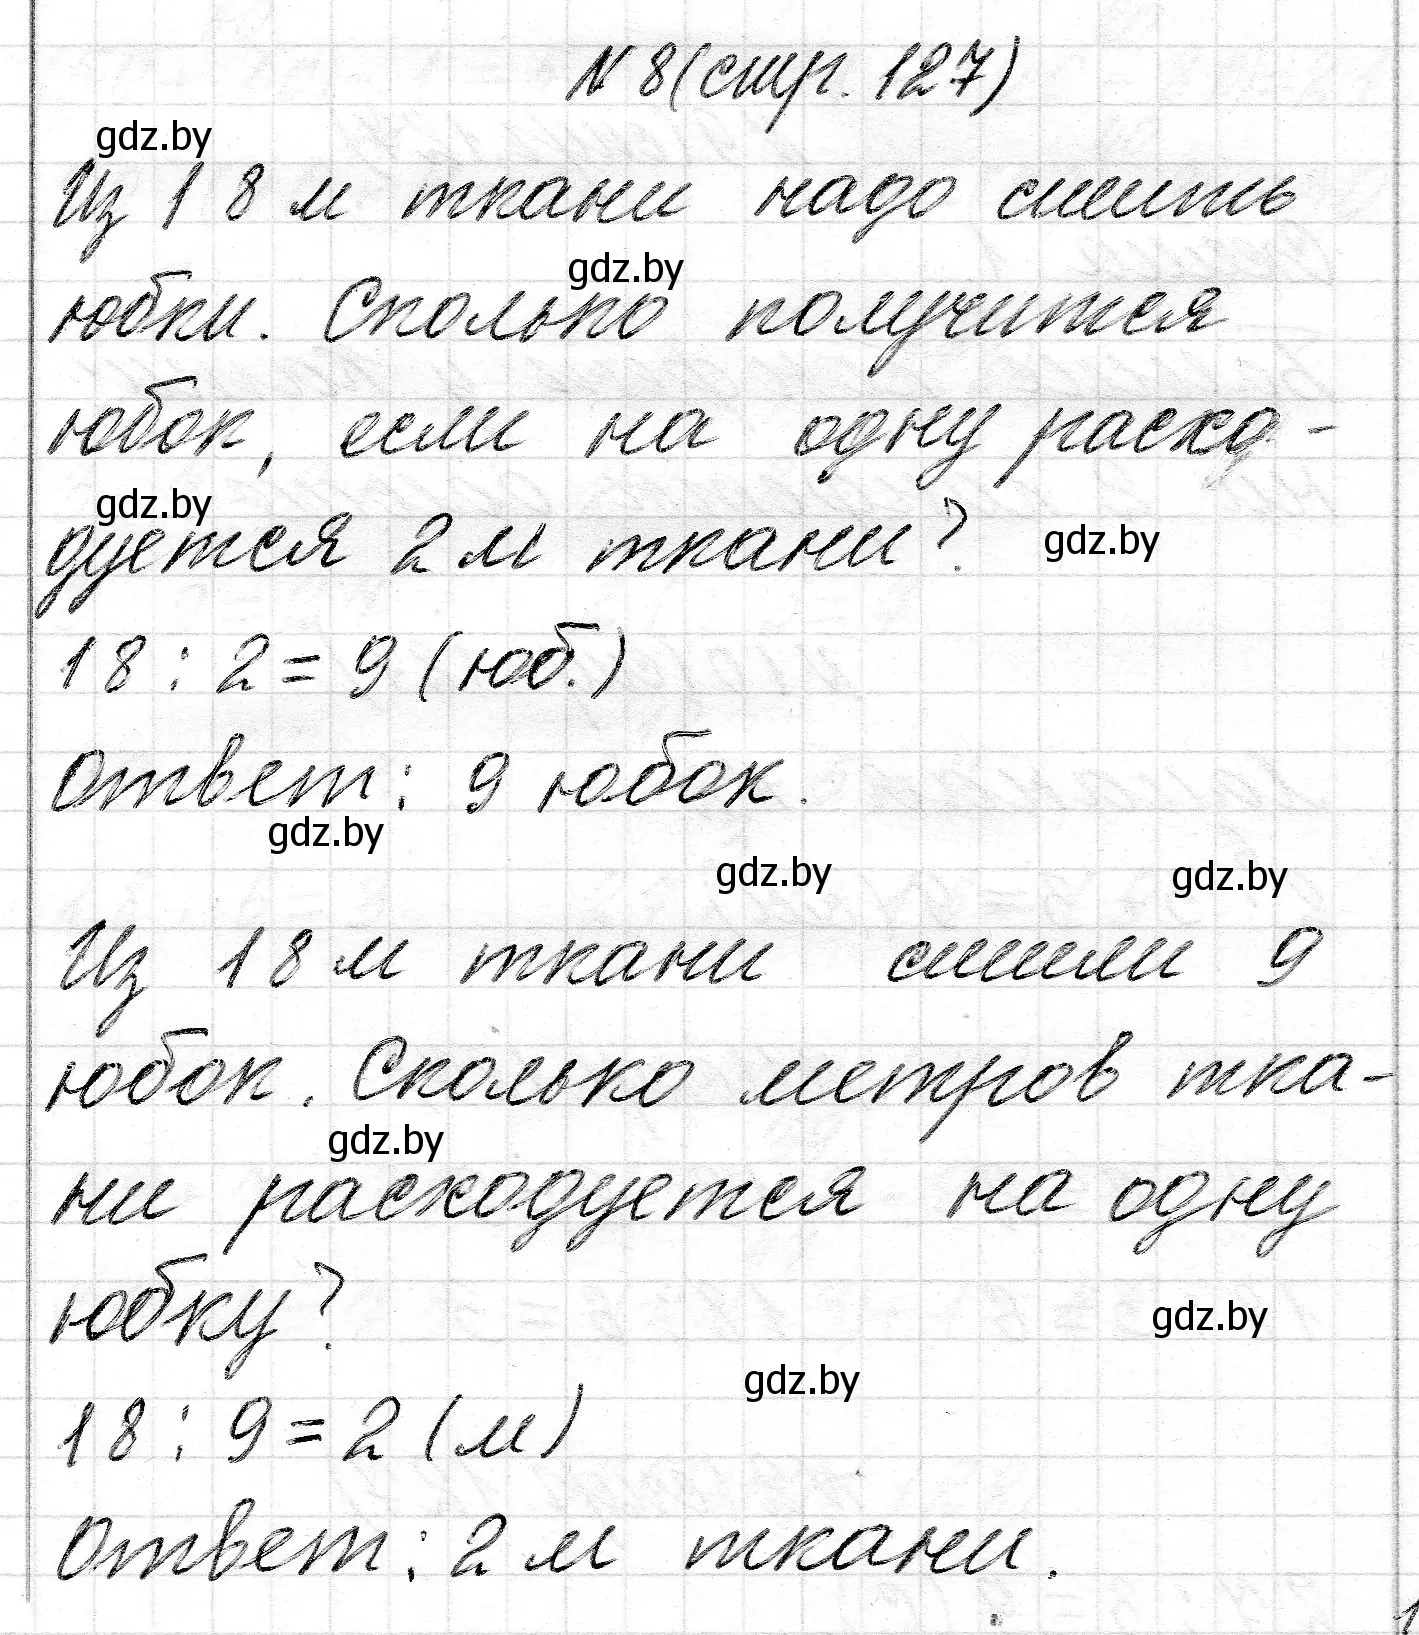 N 8 (стр. 127)
gdz.by
Из 18 м ткани надо сшить
gdz.by
юбки. Сколько получится
юбок, если на одну расхо-
gdz.by
дуется 2 м ткани?
gdz.by
18 : 2 = 9 (юб.)
Ответ: 9 юбок.
gdz.by
gdz.by
gdz.by
Из 18 м ткани сшили 9
юбок. Сколько метров тка-
gdz.by
ни расходуется на одну
юбку?
gdz.by
gdz.by
18 : 9 = 2 (м)
Ответ: 2 м ткани.
1